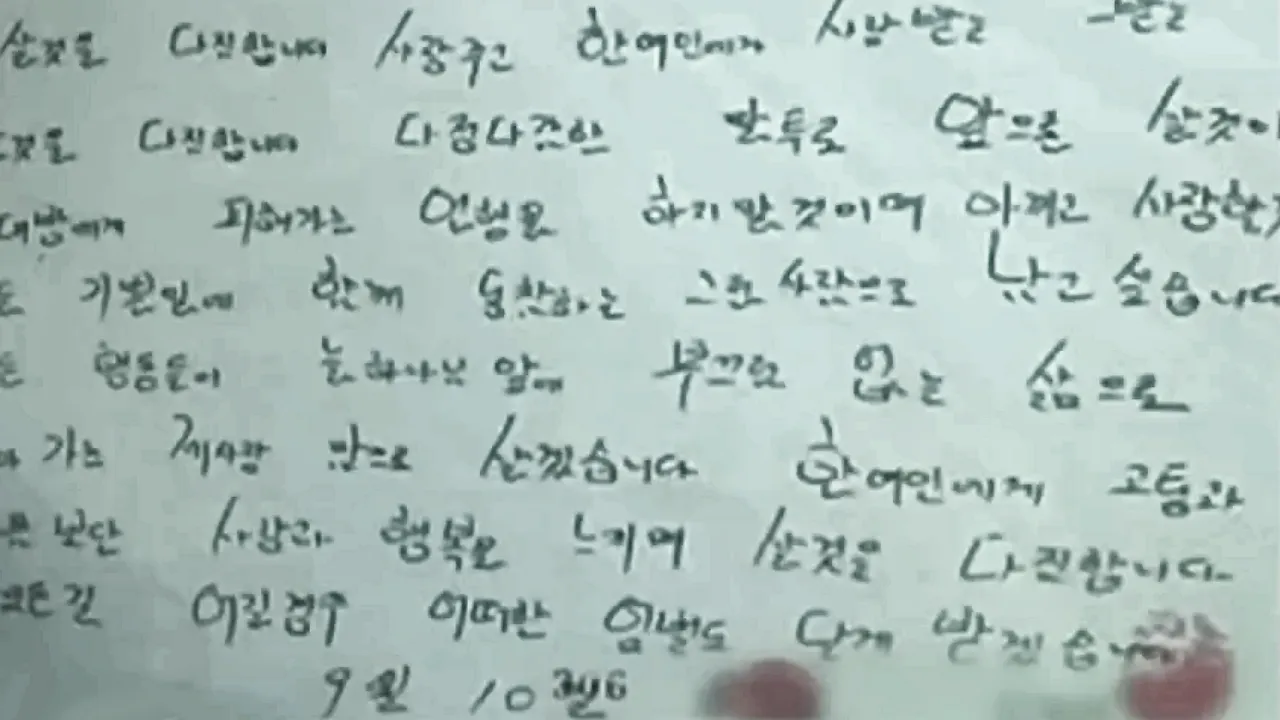 살것을 다짐합니다 사랑주고 한여인에게 사랑받고
다짐합니다 다정다감한 말투로 앞으론 살것이
피해가는 언행을 하지말것이며 아끼고 사랑한
기쁜일에 함께 동참하는 그런 사람으로 남고 싶습니다
행동들이 늘하나님 앞에 부끄럼 없는 삶으로
가는 제사랑 만으로 살겠습니다 한여인에게 고통과
보단 사랑과 행복을 느끼며 살것을 다짐합니다
어길경우 어떠한 엄벌도 달게 받겠습니다
9월 10